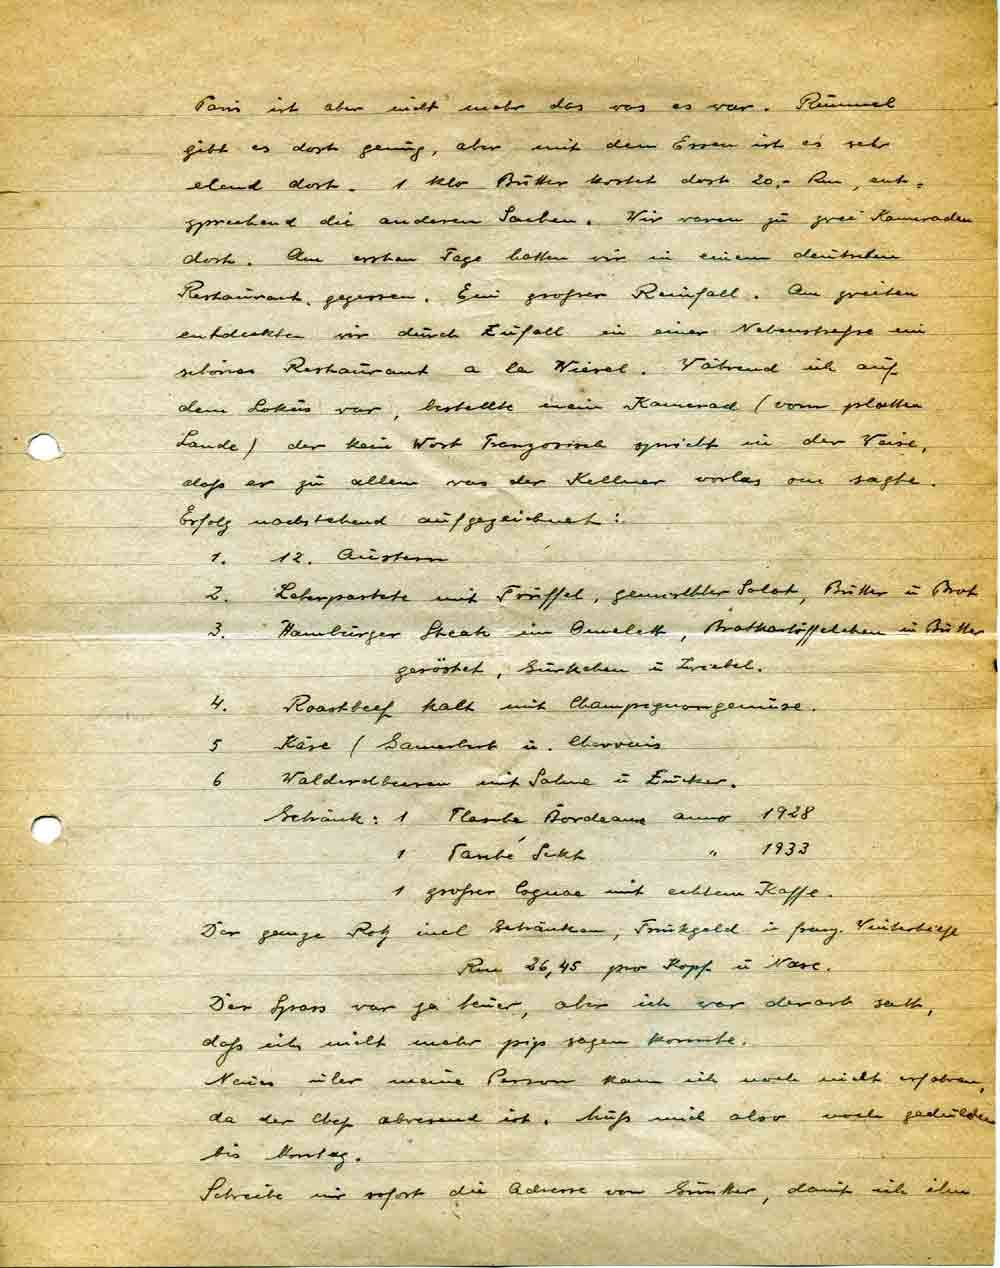 Paris ist aber nicht mehr das was es war. Rummel
gibt es dort genug, aber mit dem Essen ist es sehr
elend dort. 1 Klo Butter kostet dort 20,- Rm, ent-
sprechend die anderen Sachen. Wir waren zu zwei Kameraden
dort. Am ersten Tage hatten wir in einem deutschen
Restaurant gegessen. Ein großer Reinfall. Am zweiten
entdeckten wir durch Zufall in einer Nebenstraße ein
schönes Restaurant a la Wiesel. Während ich auf
dem Lokus war, bestellte mein Kamerad (vom platten
Lande) der kein Wort Französisch spricht in der Weise,
daß er zu allem was der Kellner vorlas oui sagte.
Erfolg nachstehend aufgezeichnet:
1. 12. Austern
2. Leberpastete mit Trüffel, gemischter Salat, Butter u Brot
3. Hamburger Steak im Omelett, Bratkartöffelchen in Butter
geröstet, Gürkchen u Zwiebel.
4. Roastbeef kalt mit Champignongemüse.
5 Käse (Camerbert u.
6 Walderdbeeren mit Sahne u Zucker.
Getränk: 1 Flasche Bordeaux anno 1928
1 Sekt " 1933
1 großer Cognac mit echtem Kaffe.
Der ganze Rotz incl Getränken, Trinkgeld u franz.
Rm 26,45 pro Kopf u Nase.
Der Spass war ja teuer, aber ich war derart satt,
daß ich nicht mehr pips sagen konnte.
Neues über meine Person kann ich noch nicht erfahren,
da der Chef abwesend ist. Muß mich also noch gedulden
bis Montag.
Schreibe mir sofort die Adresse von Günther, damit ich ihm